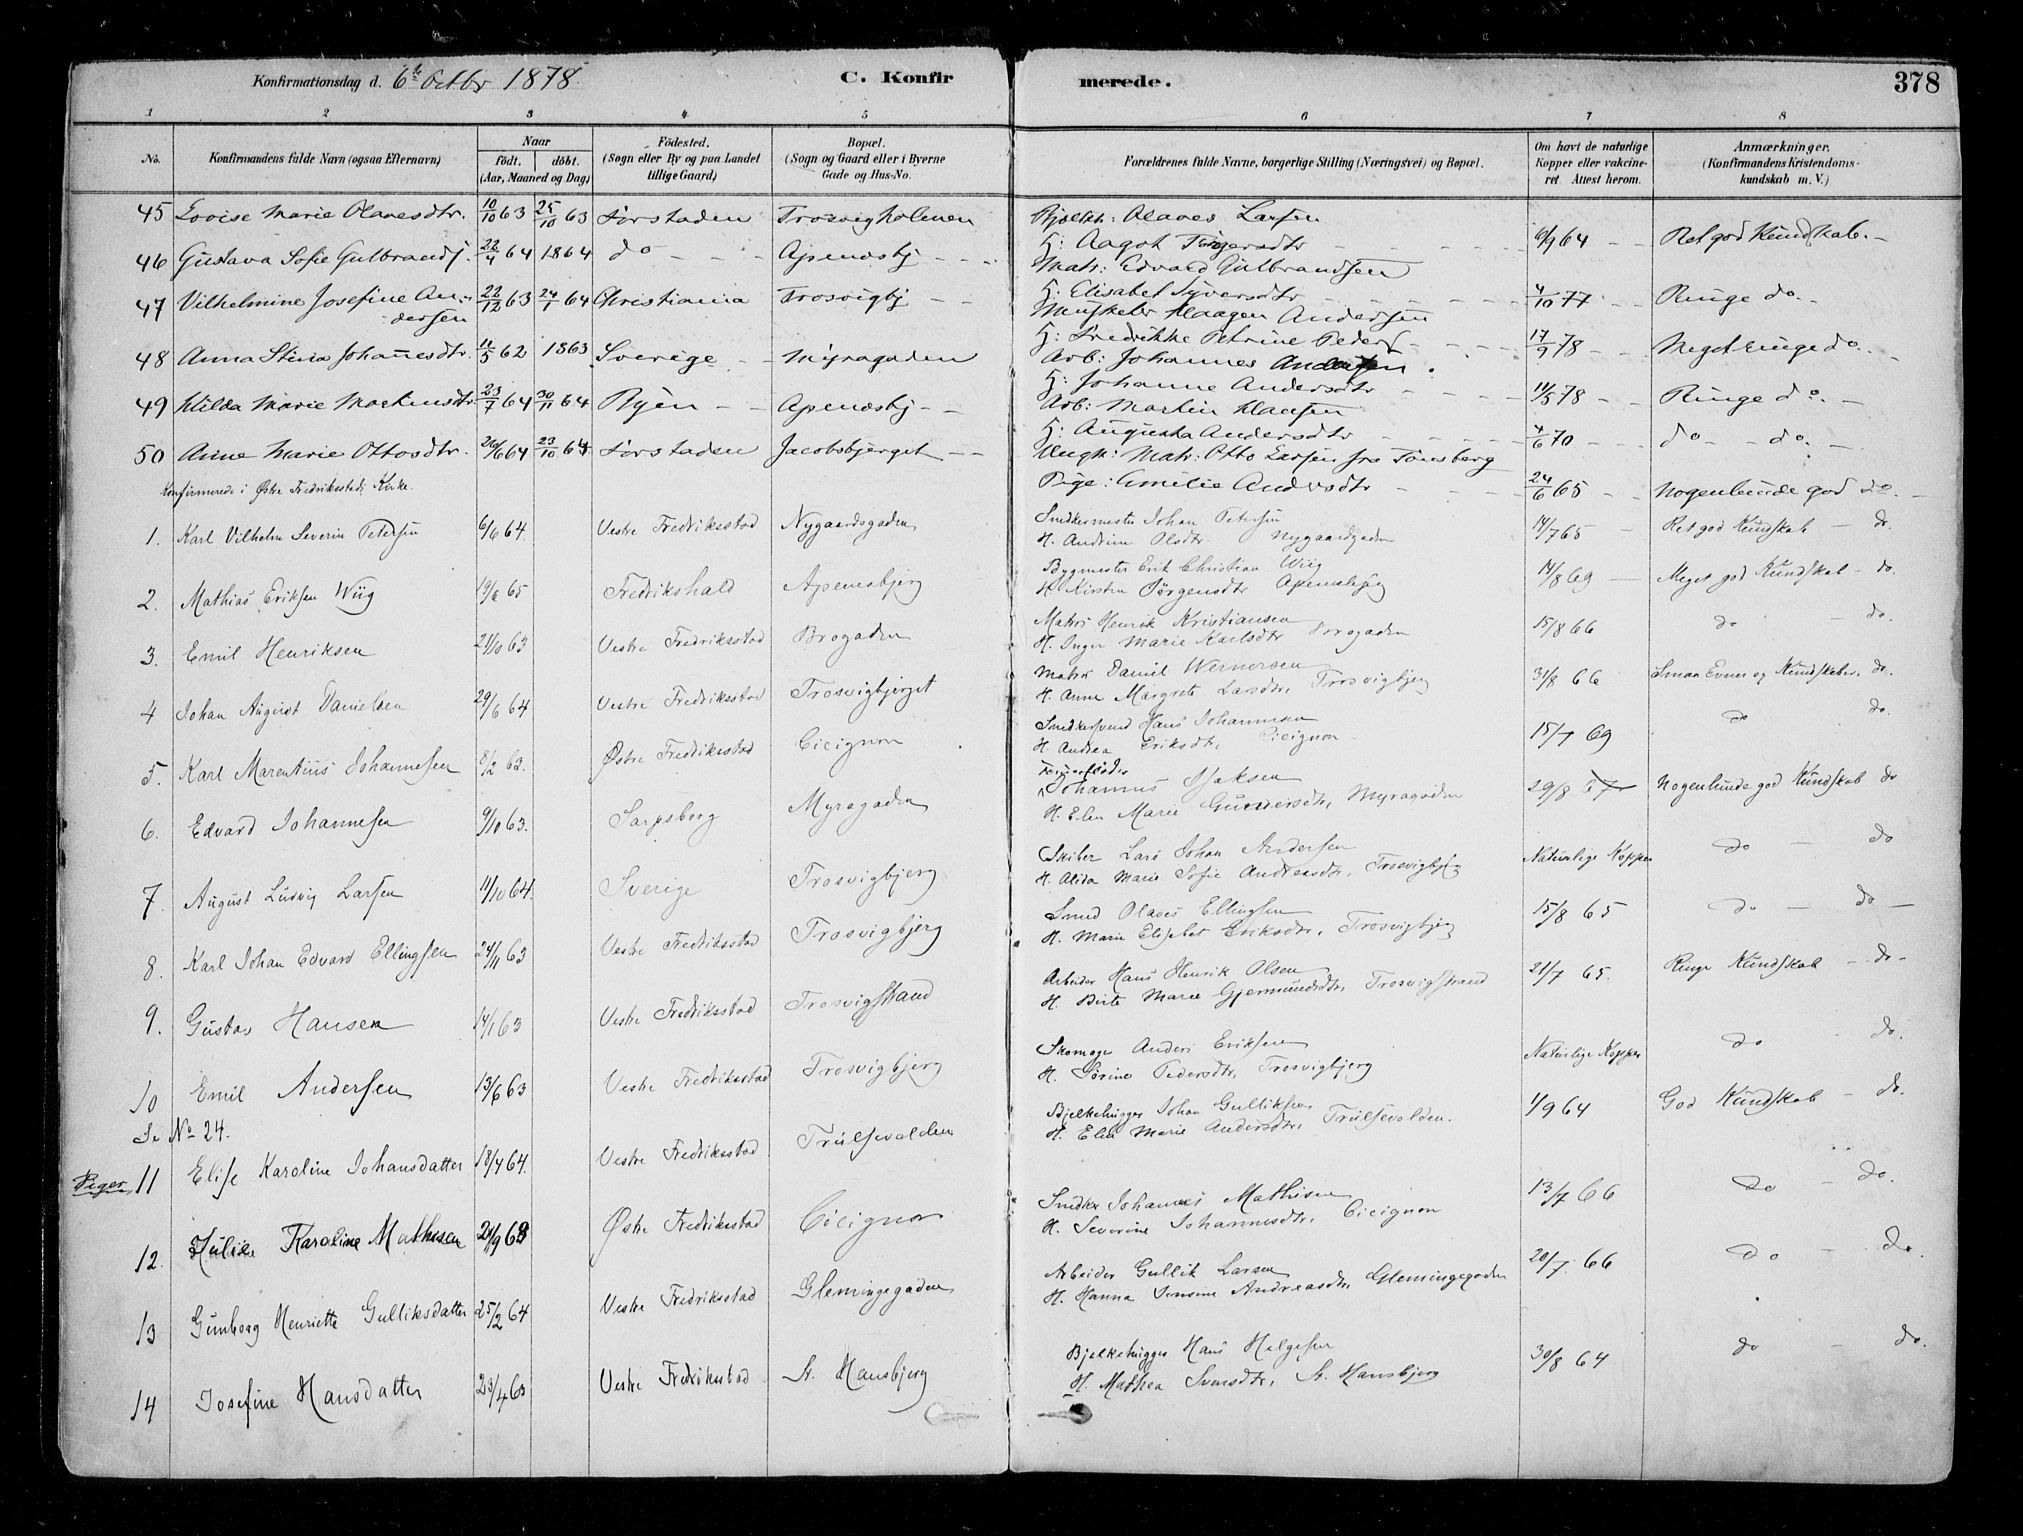 Konfirmationsdag d. 6te Octbr 1878. C. Konfirmerede. 378
1 2 3 4 5 6 7 8
No. Konfirmandens fulde Navn (ogsaa Efternavn) Naar født. døbt. (Aar, Maaned og Dag) Fødested. (Sogn eller By og paa Landet tillige Gaard) Bopæl. (Sogn og Gaard eller i Byerne Gade og Hus-No. Forældrenes fulde Navne, borgerlige Stilling (Næringsvei) og Bopæl. Om havt de naturlige Kopper eller vakcineret. Attest herom. Anmærkninger. (Konfirmandens Kristendomskundskab m. V.)
45 Lovise Marie Olavesdtr. 10/10 63 25/10 63 Forstaden Trosvigholmen Olaves Larsen
H: Aagot 6/9 64 Ret god Kundskab.
46 Gustava Sofie Gulbrands. 22/4 64 1864 do Apenæsbj Matr: Edvard Gulbrandsen
H: Elisabet Syversdtr 4/10 77 Ringe do.
47 Vilhelmine Josefine Andersen 22/12 63 24/1 64 Christiania Trosvigbj Haagen Andersen
H: Fredrikke Petrine Peders 17/9 78 Meget ringe do.
48 Anna Stina Johanesdtr. 11/5 62 1863 Sverige Myragaden Arb: Johannes Andersen.
H: Johanne Andersdtr 11/5 78 Ringe do.
49 Hilda Marie Martinsdtr 23/7 64 30/11 64 Apenæsbj Arb: Martin Hansen
H: Augusta Andersdtr 4/6 70 do do.
50 Anne Marie Ottosdtr. 26/6 64 23/10 64 Forstaden Jacobsbjerget Ungk: Matr: Otto Larsen fra Tønsberg
Pige: Emilie Andersdtr 24/6 65 Nogenlunde god do.
Konfirmerede i Østre Fredriksstads Kirke.
1. Karl Vilhelm Severin Petersen 6/6 64. Vestre Fredriksstad Nygaardsgaden Snedkermester Johan Petersen
H. Andrine Olsdtr. Nygaardsgaden 14/7 65 Ret god Kundskab – do.
2. Mathias Eriksen Wiig 19/6 65 Fredrikshald Apenæsbjerg Bygmester Erik Christian Wiig
H. Kirsten Jørgensdtr Apenæsbjerg 14/8 69 Meget god Kundskab – do.
3. Emil Henriksen 21/10 63 Vestre Fredriksstad Brogaden Matros Henrik Kristiansen
H. Inger Marie Karlsdtr Brogaden 15/8 66 do – do.
4 Johan August Danielsen 29/6 64 Vestre Fredriksstad Trosvigbjerget Matros Daniel Wernersen
H. Anne Margrete Larsdtr, Trosvigbjerg 31/8 66 Smaa Evner og Kundskaber. do.
5. Karl Marentius Johannesen 8/2 63. Østre Fredriksstad Cicignon Snedkersvend Hans Johannesen
H. Andrea Eriksdtr, Cicignon 15/7 69 do do.
6. Edvard Johannesen 9/10 63. Sarpsborg Myragaden Tømmerfløder
Johannes Isaksen
H. Elen Marie Gundersdtr, Myragaden 29/8 67 Nogenlunde god Kundskab do
7. August Ludvig Larsen 11/10 64. Sverige Trosvigbjerg Skiber Lars Johan Andersen
H. Alida Marie Sofie Andreasdtr, Trosvigbjerg Naturlige Kopper do – do
8. Karl Johan Edvard Ellingsen 24/11 63 Vestre Fredriksstad Trosvigbjerg Smed Olaves Ellingsen
H. Marie Elisabet Eriksdtr, Trosvigbjerg 15/8 65 do – do –
9. Gustav Hansen 14/1 63 Vestre Fredriksstad Trosvigstrand Arbeider Hans Henrik Olsen
H. Birte Marie Gjermundsdtr, Trosvigstrand 21/7 65. Ringe Kundskab – do –
10 Emil Andersen 13/6 63 Vestre Fredriksstad Trosvigbjerg Skomager Anders Eriksen
H. Sørine Pedersdtr, Trosvigbjerg Naturlige Kopper do – do.
Se No 24.
Piger 11 Elise Karoline Johansdatter 18/4 64. Vestre Fredriksstad Trulsevolden Bjelkehugger Johan Gulliksen
H. Elen Marie Andersdtr, Trulsevolden. 1/9 64 God Kundskab – do.
12. Julie Karoline Mathisen 21/9 63 Østre Fredriksstad Cicignon Snedker Johannes Mathisen
H. Severine Johannesdtr, Cicignon 13/7 66 do – do.
13 Gunborg Henriette Gulliksdatter 25/2 64 Vestre Fredriksstad Glemingegaden Arbeider Gullik Larsen
H. Hanna Jensine Andreasdtr, Glemingegaden 20/7. 66 do – do.
14 Josefine Hansdatter 23/4 63 Vestre Fredriksstad St. Hansbjerg Bjelkehugger Hans Helgesen
H. Mathea Svensdtr, St. Hansbjerg 30/8 64 do – do.